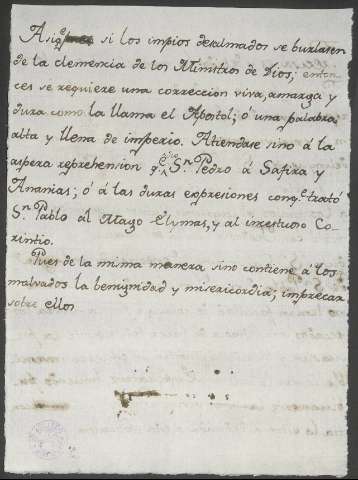 Asiq.e si los impios desalmados se burlasen
de la clemencia de los Ministros de Dios; enton
ces se requiere una correccion viva, amarga y
dura como la llama el Apostol; ó una palabra
alta y llena de imperio. Atiendase sino á la
aspera reprehension q.e dio S.n Pedro á Safira y
Ananias; ó á las duras expresiones con q.e trató
S.n Pablo al Mago Elymas, y al incestuoso Co-
rintio.
Pues de la misma manera sino contiene á los
malvados la benignidad y misericordia; imprecar
sobre ellos